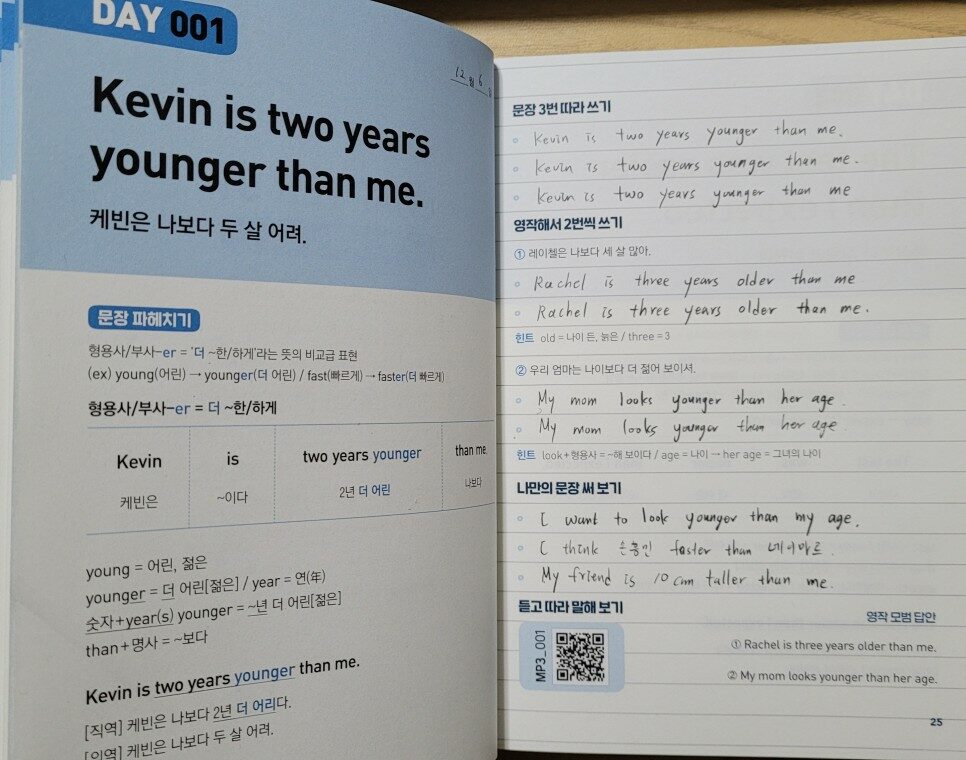 DAY 001
12월 6일
Kevin is two years
younger than me.
케빈은 나보다 두 살 어려.
문장 파헤치기
형용사/부사-er = '더 ~한/하게'라는 뜻의 비교급 표현
(ex) young(어린) → younger(더 어린) / fast(빠르게) → faster(더 빠르게)
형용사/부사-er = 더 ~한/하게
Kevin is two years younger than me.
케빈은 ~이다 2년 더 어린 나보다
young = 어린, 젊은
younger = 더 어린[젊은] / year = 연(年)
숫자+year(s) younger = ~년 더 어린[젊은]
than+명사 = ~보다
Kevin is two years younger than me.
[직역] 케빈은 나보다 2년 더 어리다.
[의역] 케빈은 나보다 두 살 어려.
문장 3번 따라 쓰기
Kevin is two years younger than me.
Kevin is two years younger than me.
Kevin is two years younger than me
영작해서 2번씩 쓰기
① 레이첼은 나보다 세 살 많아.
Rachel is three years older than me
Rachel is three years older than me.
힌트 old = 나이 든, 늙은 / three = 3
② 우리 엄마는 나이보다 더 젊어 보이셔.
My mom looks younger than her age.
My mom looks younger than her age.
힌트 look+형용사 = ~해 보이다 / age = 나이 → her age = 그녀의 나이
나만의 문장 써 보기
I want to look younger than my age.
I think 손흥민 faster than 네이마르.
My friend is 10cm taller than me.
듣고 따라 말해 보기
MP3_001
영작 모범 답안
① Rachel is three years older than me.
② My mom looks younger than her age.
25